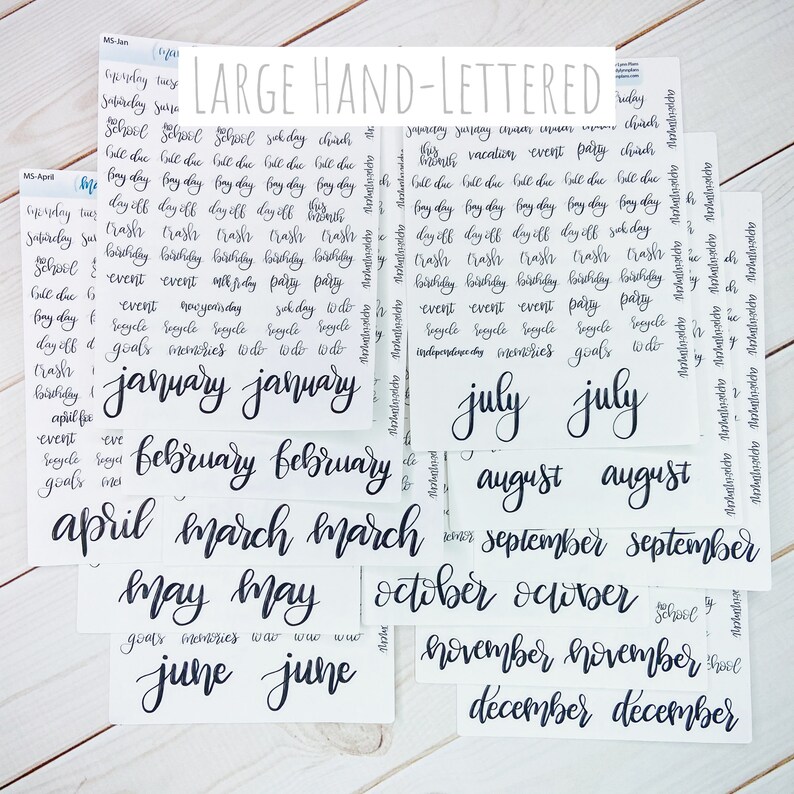 Large Hand-Lettered
MS-Jan
monday
saturday
no school no school no school sick day church
bill due bill due bill due bill due bill due
pay day pay day pay day pay day pay day
day off day off day off day off this month
trash trash trash trash trash
birthday birthday birthday birthday birthday
event event milk friday party party
event new years day sick day to do
recycle recycle recycle recycle recycle
goals memories to do to do to do
appointment appointment appointment appointment
january january
february february
MS-April
monday
saturday
no school
bill due
pay day
day off
trash
birthday
event
recycle
goals
april march march
may may
goals memories to do to do to do
june june
friday
saturday sunday church church church church
this month vacation event party church
bill due bill due bill due bill due bill due
pay day pay day pay day pay day pay day
day off day off day off day off sick day
trash trash trash trash trash
birthday birthday birthday birthday birthday
event event event party party
recycle recycle recycle recycle recycle
independence day memories goals to do
appointment appointment appointment appointment
july july
august august
september september
october october
no school
november november
school
december december